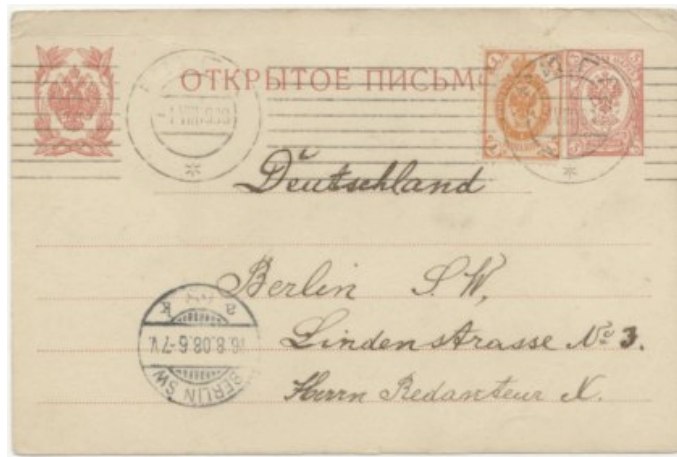 ОТКРЫТОЕ ПИСЬМО
Deutschland
Berlin S.W,
Lindenstrasse № 3.
Herrn Redanteur X.
BERLIN SW
16.8.08.6-7V.
a k